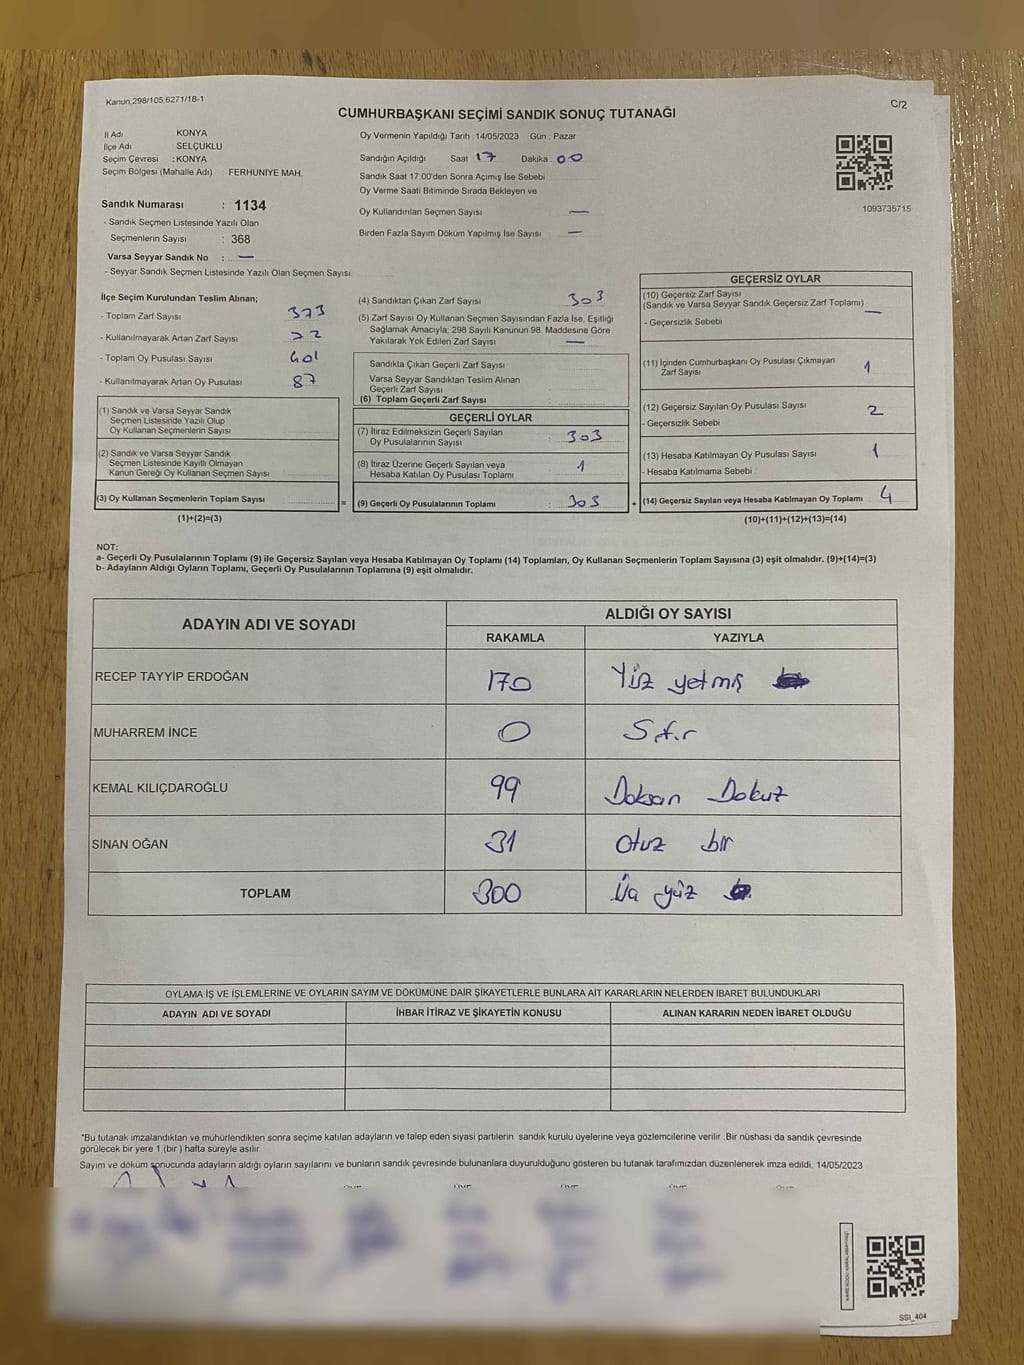 Kanun 298/105,6271/18-1
C/2
CUMHURBAŞKANI SEÇİMİ SANDIK SONUÇ TUTANAĞI
İl Adı KONYA
İlçe Adı SELÇUKLU
Seçim Çevresi : KONYA
Seçim Bölgesi (Mahalle Adı) FERHUNİYE MAH.
Sandık Numarası : 1134
- Sandık Seçmen Listesinde Yazılı Olan
Seçmenlerin Sayısı : 368
Varsa Seyyar Sandık No : —
- Seyyar Sandık Seçmen Listesinde Yazılı Olan Seçmen Sayısı
Oy Vermenin Yapıldığı Tarih : 14/05/2023 Gün : Pazar
Sandığın Açıldığı Saat 17 Dakika : 00
Sandık Saat 17:00'den Sonra Açımış İse Sebebi
Oy Verme Saati Bitiminde Sırada Bekleyen ve
Oy Kullandırılan Seçmen Sayısı —
Birden Fazla Sayım Döküm Yapılmış İse Sayısı —
1093735715
İlçe Seçim Kurulundan Teslim Alınan;
- Toplam Zarf Sayısı 373
- Kullanılmayarak Artan Zarf Sayısı 72
- Toplam Oy Pusulası Sayısı 401
- Kullanılmayarak Artan Oy Pusulası 87
(1) Sandık ve Varsa Seyyar Sandık
Seçmen Listesinde Yazılı Olup
Oy Kullanan Seçmenlerin Sayısı
(2) Sandık ve Varsa Seyyar Sandık
Seçmen Listesinde Kayıtlı Olmayan
Kanun Gereği Oy Kullanan Seçmen Sayısı
(3) Oy Kullanan Seçmenlerin Toplam Sayısı =
(1)+(2)=(3)
(4) Sandıktan Çıkan Zarf Sayısı 303
(5) Zarf Sayısı Oy Kullanan Seçmen Sayısından Fazla İse, Eşitliği
Sağlamak Amacıyla; 298 Sayılı Kanunun 98. Maddesine Göre
Yakılarak Yok Edilen Zarf Sayısı —
Sandıkta Çıkan Geçerli Zarf Sayısı
Varsa Seyyar Sandıktan Teslim Alınan
Geçerli Zarf Sayısı
(6) Toplam Geçerli Zarf Sayısı
GEÇERLİ OYLAR
(7) İtiraz Edilmeksizin Geçerli Sayılan
Oy Pusulalarının Sayısı 303
(8) İtiraz Üzerine Geçerli Sayılan veya
Hesaba Katılan Oy Pusulası Toplamı 1
(9) Geçerli Oy Pusulalarının Toplamı 303 +
GEÇERSİZ OYLAR
(10) Geçersiz Zarf Sayısı
(Sandık ve Varsa Seyyar Sandık Geçersiz Zarf Toplamı) —
- Geçersizlik Sebebi
(11) İçinden Cumhurbaşkanı Oy Pusulası Çıkmayan
Zarf Sayısı 1
(12) Geçersiz Sayılan Oy Pusulası Sayısı 2
- Geçersizlik Sebebi
(13) Hesaba Katılmayan Oy Pusulası Sayısı 1
- Hesaba Katılmama Sebebi
(14) Geçersiz Sayılan veya Hesaba Katılmayan Oy Toplamı 4
(10)+(11)+(12)+(13)=(14)
NOT:
a- Geçerli Oy Pusulalarının Toplamı (9) ile Geçersiz Sayılan veya Hesaba Katılmayan Oy Toplamı (14) Toplamları, Oy Kullanan Seçmenlerin Toplam Sayısına (3) eşit olmalıdır. (9)+(14)=(3)
b- Adayların Aldığı Oyların Toplamı, Geçerli Oy Pusulalarının Toplamına (9) eşit olmalıdır.
ADAYIN ADI VE SOYADI ALDIĞI OY SAYISI
RAKAMLA YAZIYLA
RECEP TAYYİP ERDOĞAN 170 Yüz yetmiş
MUHARREM İNCE 0 Sıfır
KEMAL KILIÇDAROĞLU 99 Doksan Dokuz
SİNAN OĞAN 31 Otuz bir
TOPLAM 300 Üç yüz
OYLAMA İŞ VE İŞLEMLERİNE VE OYLARIN SAYIM VE DÖKÜMÜNE DAİR ŞİKAYETLERLE BUNLARA AİT KARARLARIN NELERDEN İBARET BULUNDUKLARI
ADAYIN ADI VE SOYADI İHBAR İTİRAZ VE ŞİKAYETİN KONUSU ALINAN KARARIN NEDEN İBARET OLDUĞU
*Bu tutanak imzalandıktan ve mühürlendikten sonra seçime katılan adayların ve talep eden siyasi partilerin sandık kurulu üyelerine veya gözlemcilerine verilir .Bir nüshası da sandık çevresinde
görülecek bir yere 1 (bir ) hafta süreyle asılır.
Sayım ve döküm sonucunda adayların aldığı oyların sayılarını ve bunların sandık çevresinde bulunanlara duyurulduğunu gösteren bu tutanak tarafımızdan düzenlenerek imza edildi. 14/05/2023
SSI_404